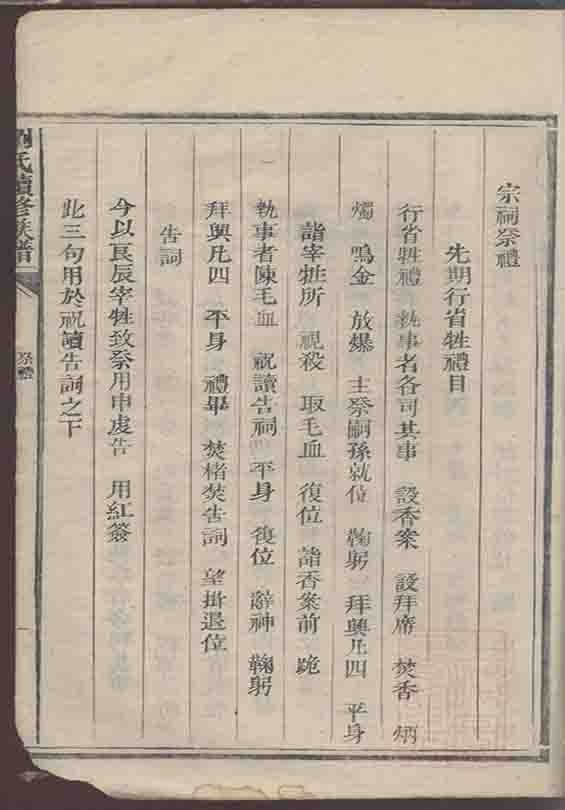 宗祠祭禮
先期行省牲禮目
行省牲禮 執事者各司其事 設香案 設拜席 焚香 炳
燭 鳴金 放爆 主祭嗣孫就位 鞠躬 拜興凡四 平身
詣宰牲所 視殺 取毛血 復位 詣香案前 跪
執事者陳毛血 祝讀告祠 平身 復位 辭神 鞠躬
拜興凡四 平身 禮畢 焚楮焚告詞 望拑退位
告詞
今以良辰宰牲致祭用申虔告 用紅簽
此三句用於祝讀告詞之下
氏續修族譜
祭禮